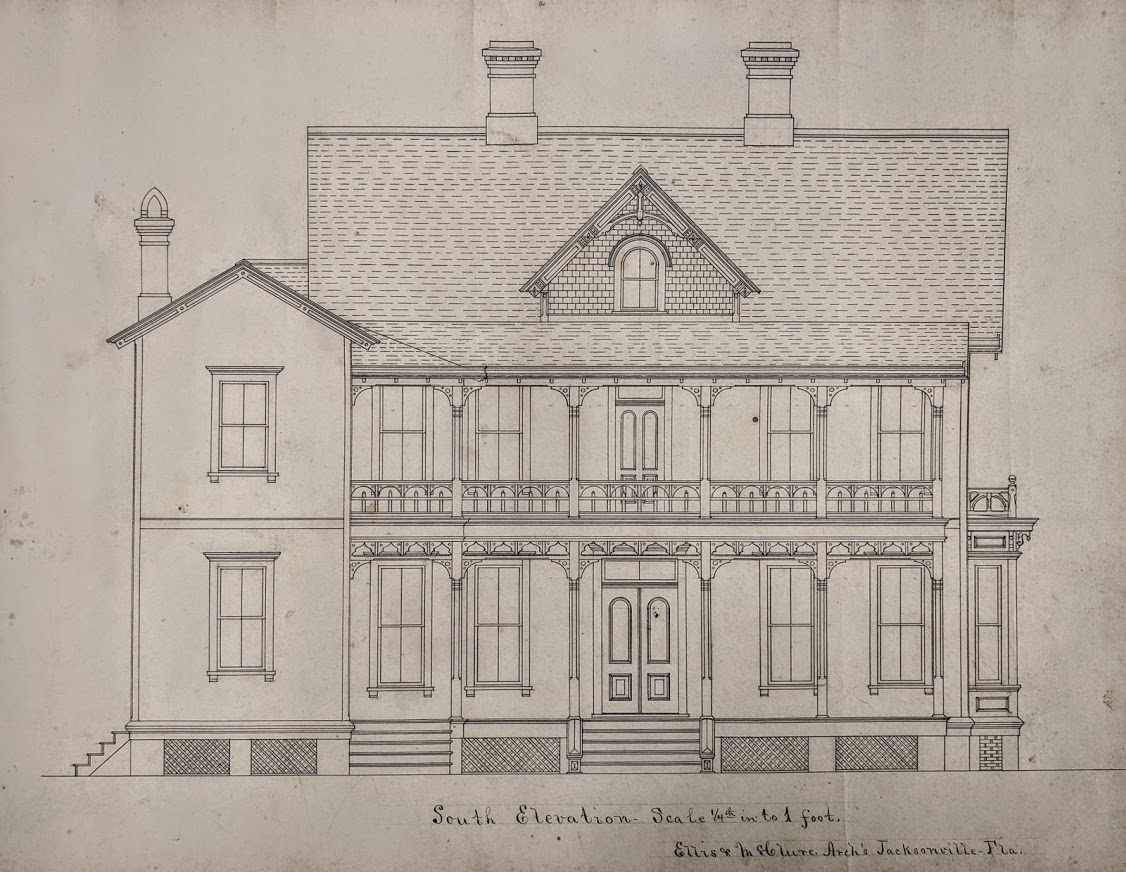 South Elevation - Scale 1/4th in to 1 foot.
Ellis & McClure. Arch's Jacksonville - Fla.